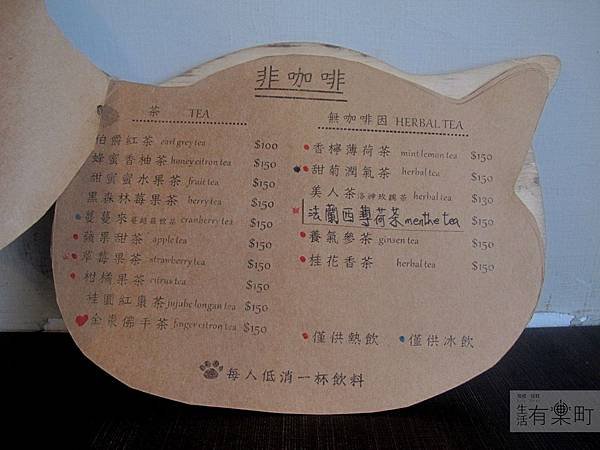 非咖啡
茶 TEA
伯爵紅茶 earl grey tea $100
蜂蜜香柚茶 honey citron tea $150
甜蜜蜜水果茶 fruit tea $150
黑森林莓果茶 berry tea $150
蔓蔓來 蔓越莓飲品 cranberry tea $150
蘋果甜茶 apple tea $150
草莓果茶 strawberry tea $150
柑橘果茶 citrus tea $150
桂圓紅棗茶 jujube longan tea $150
金棗佛手茶 finger citron tea $150
無咖啡因 HERBAL TEA
香檸薄荷茶 mint lemon tea $150
甜菊潤氣茶 herbal tea $150
美人茶 洛神玫瑰茶 herbal tea $130
法蘭西薄荷茶 menthe tea $150
養氣參茶 ginsen tea $150
桂花香茶 herbal tea $150
僅供熱飲 僅供冰飲
每人低消一杯飲料
生活有樂町